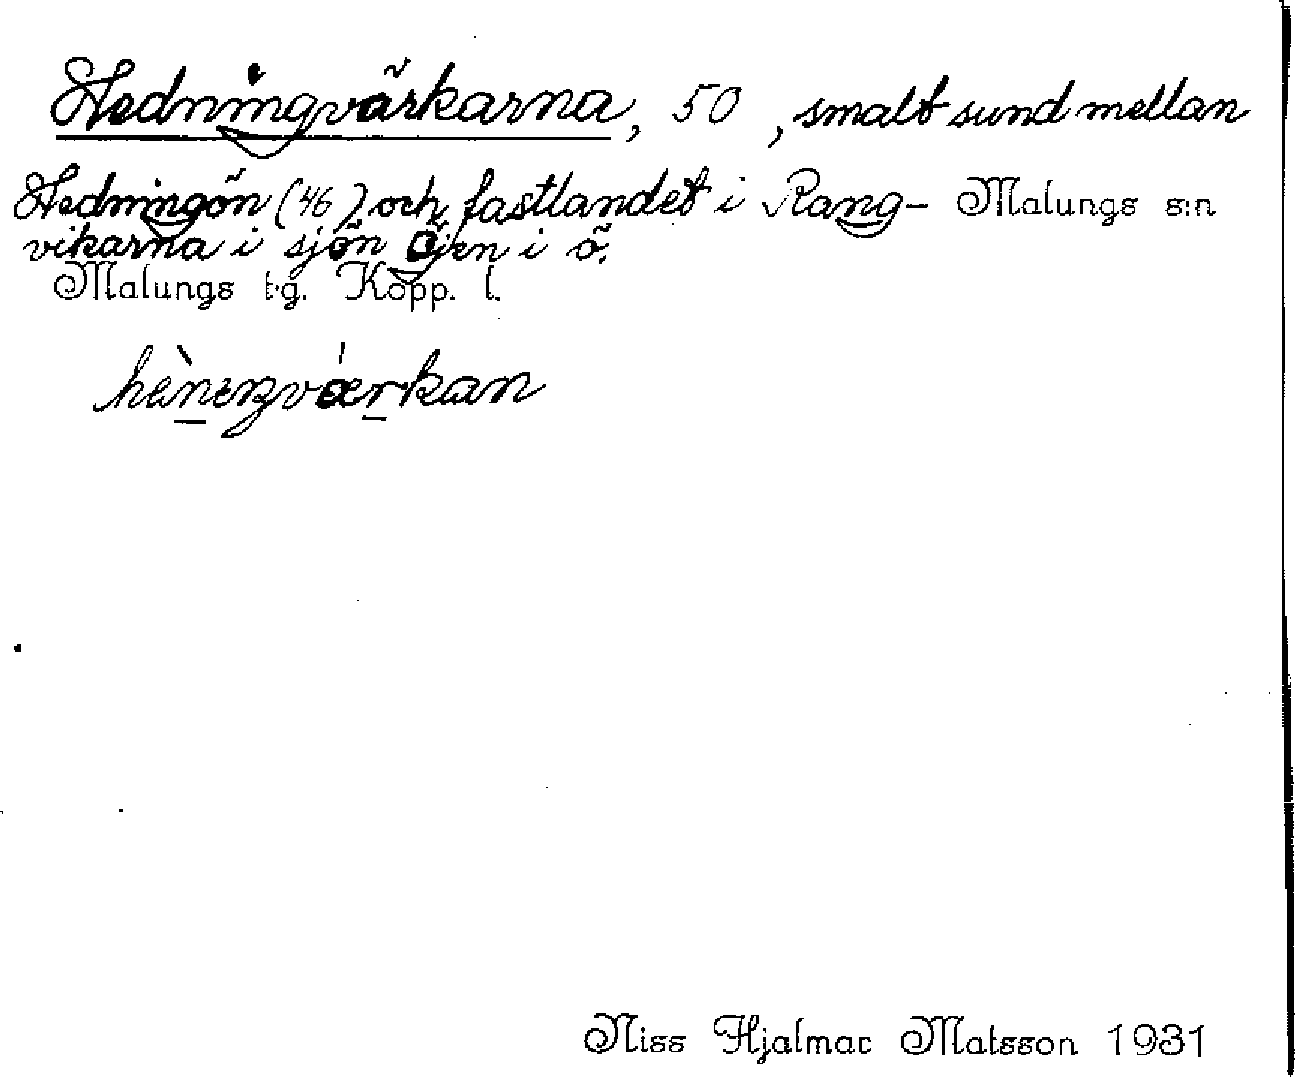 Hedningvärkarna, 50, smalt sund mellan
Hedningön (46) och fastlandet i Rang- Malungs s:n
vikarna i sjön Öjen i ö.
Malungs t.g. Kopp. l.
Niss Hjalmar Matsson 1931